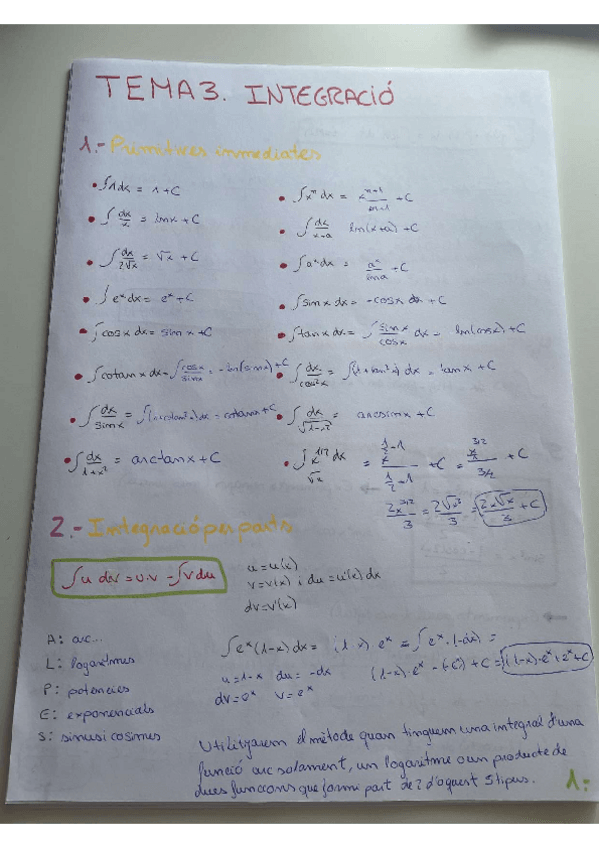 TEMA 3. INTEGRACIÓ
1.- Primitives inmediates
• ∫1dx = 1+C
• ∫x^n dx = x^(n+1)/(n+1) + C
• ∫dx/x = lnx + C
• ∫dx/(x+a) ln(x+a) + C
• ∫dx/(2√x) = √x + C
• ∫a^x dx = a^x/lna + C
• ∫e^x dx = e^x + C
• ∫sinx dx = -cosx dx + C
• ∫cosx dx = sinx + C
• ∫tanx dx = ∫sinx/cosx dx = ln(cosx) + C
• ∫cotanx dx = ∫cosx/sinx = -ln(sinx) + C
• ∫dx/cos²x = ∫(1+tan²x) dx = tanx + C
• ∫dx/sinx = cotanx + C
• ∫dx/√(1-x²) = arcsinx + C
• ∫dx/(1+x²) = arctanx + C
• ∫x^(1/2) dx = + C = x^(3/2)/(3/2) + C
√x
2x^(3/2)/3 = 2√x³/3 = 2x√x/3 + C
2.- Integració per parts
∫u dv = u.v - ∫v du
u = u(x)
v = v(x) i du = u'(x) dx
dv = v'(x)
A: arc...
L: logaritmus
P: potències
E: exponencials
S: sinus i cosinus
∫e^x (1-x) dx = (1-x) e^x = ∫e^x.(-dx) =
u = 1-x du = -dx
(1-x).e^x - (-e^x) + C = (1-x).e^x + e^x + C
dv = e^x v = e^x
Utilitzarem el mètode quan tinguem una integral d'una
funció arc solament, un logaritme o un producte de
dues funcions que formi part de 2 d'aquest 5 tipus.
1: